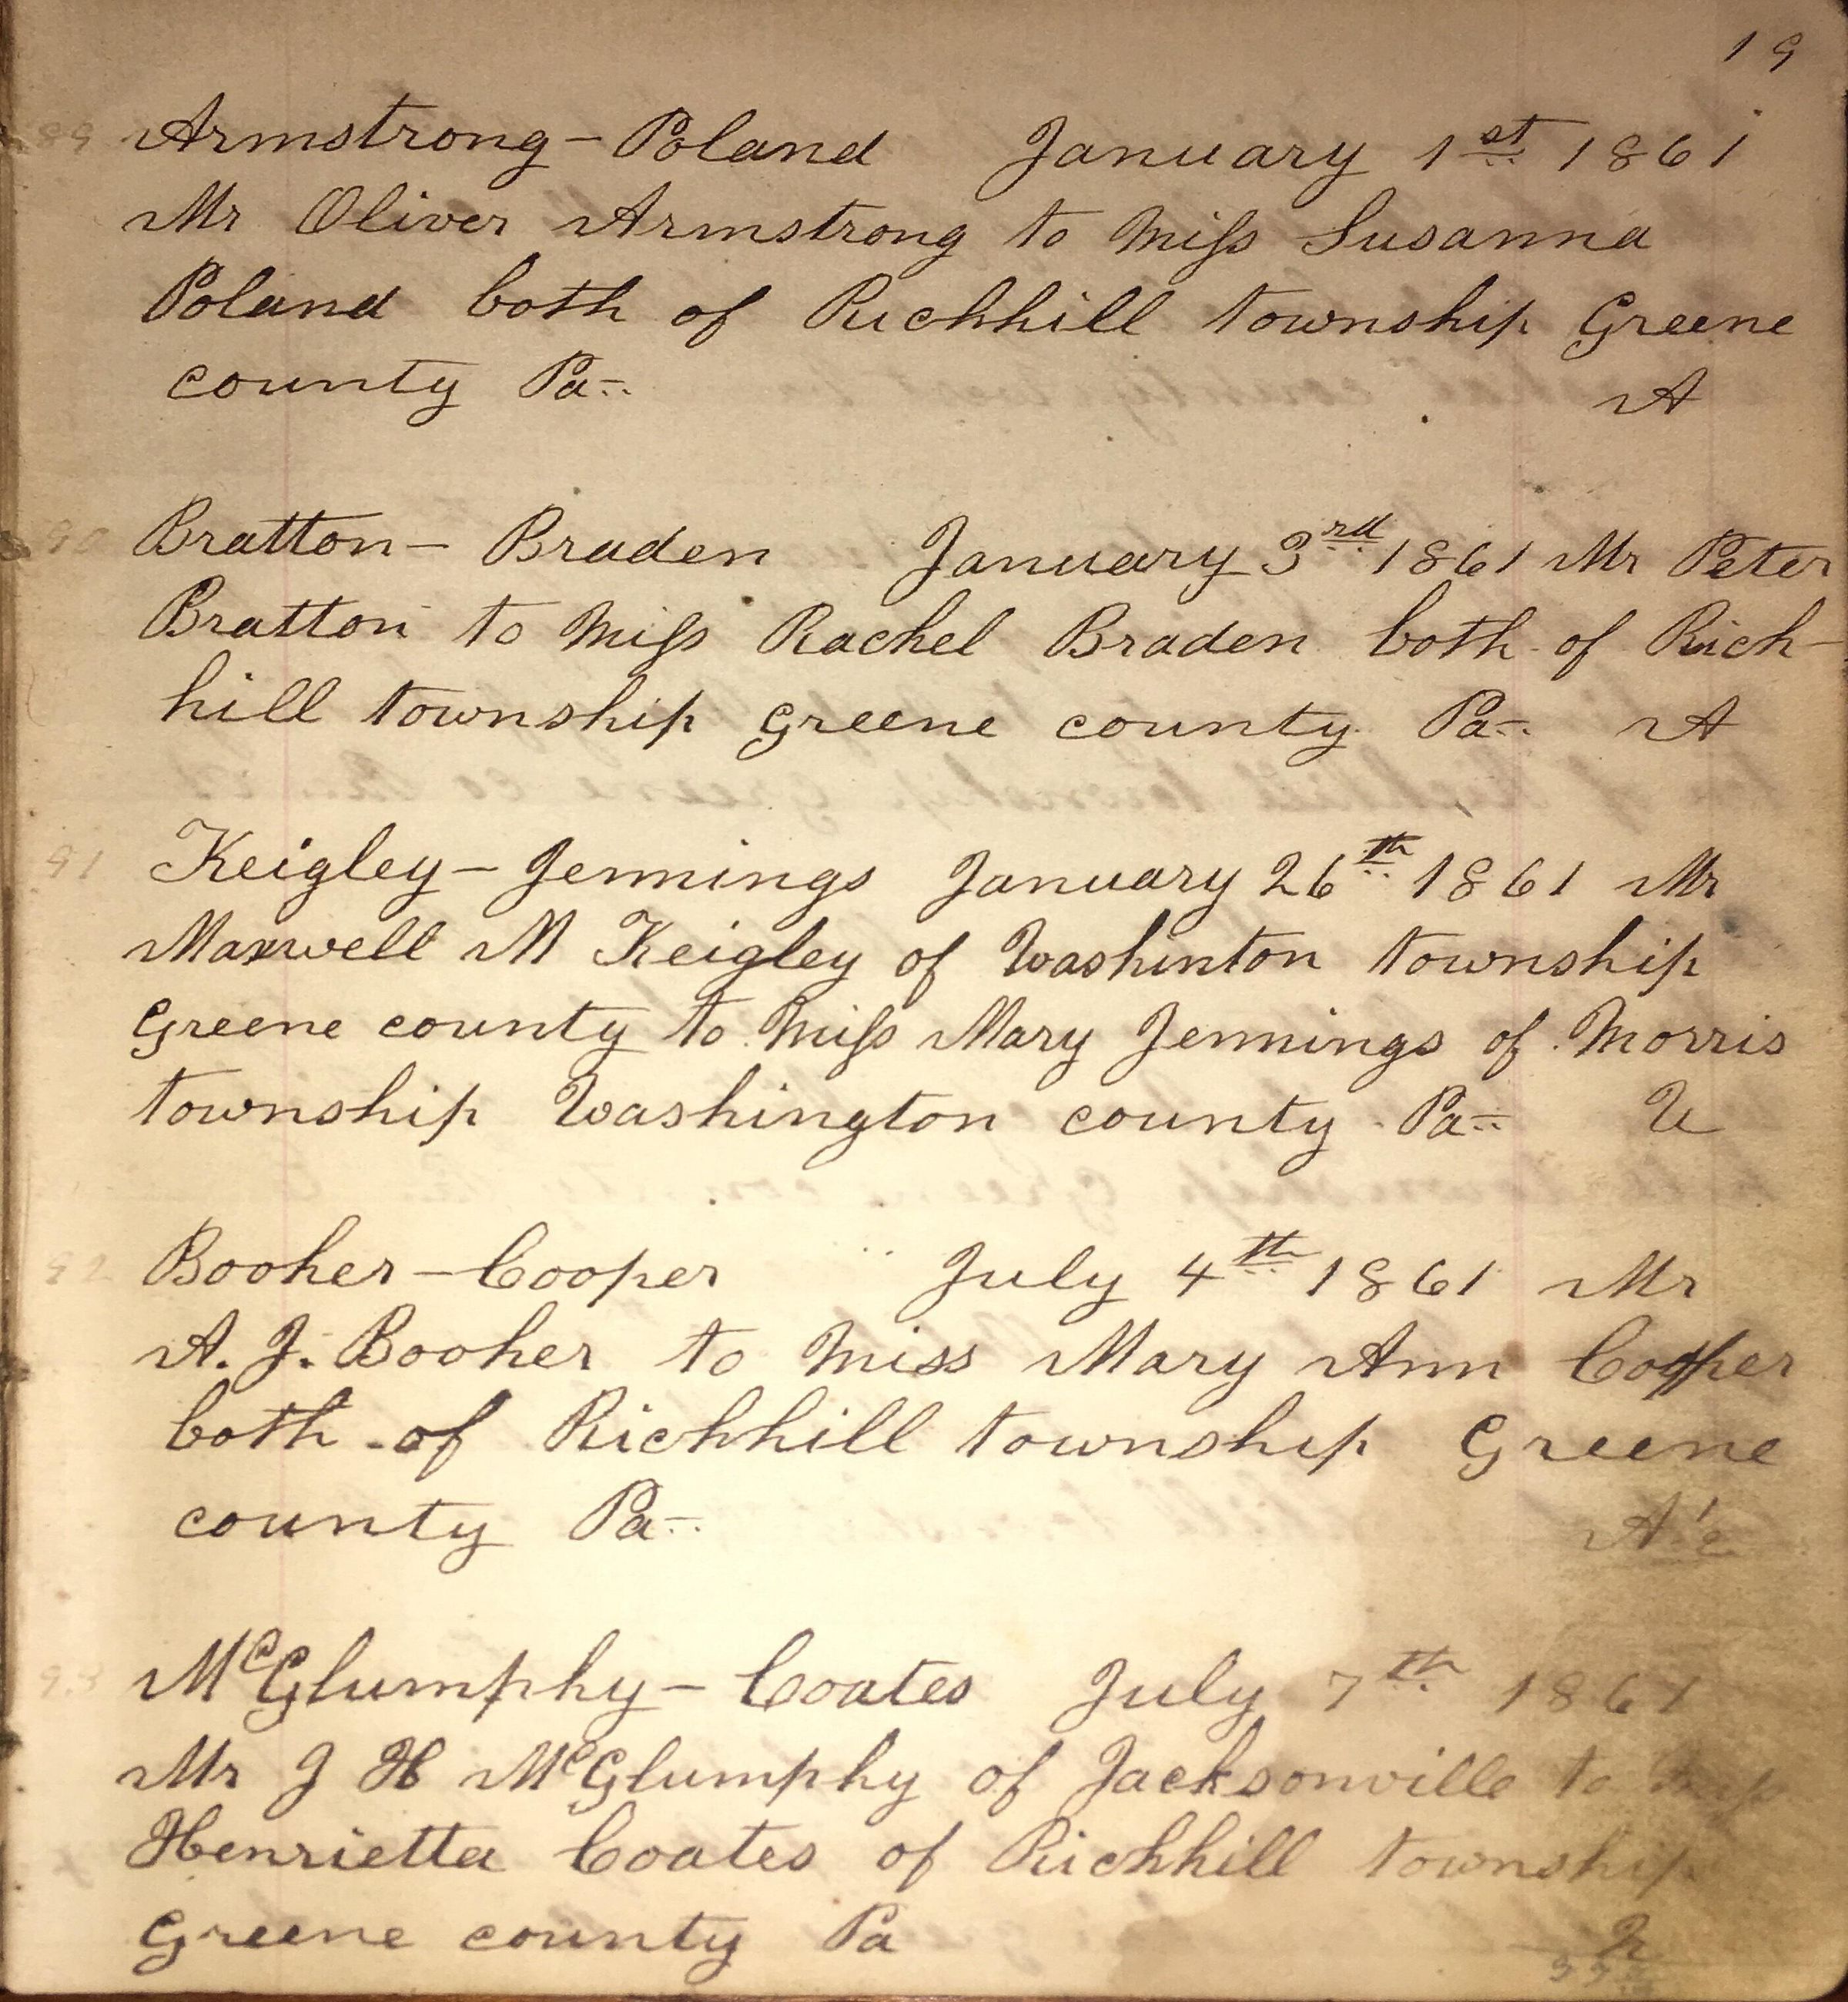 19
89 Armstrong - Poland January 1st 1861
Mr Oliver Armstrong to Miſs Susanna
Poland both of Richhill township Greene
county Pa
A
90 Bratton - Braden January 3rd 1861 Mr Peter
Bratton to Miſs Rachel Braden both of Rich-
hill township Greene county Pa A
91 Keigley - Jennings January 26th 1861 Mr
Maxwell M Keigley of Washinton township
Greene county to Miſs Mary Jennings of Morris
township Washington county Pa U
92 Booher - Cooper July 4th 1861 Mr
A. J. Booher to Miss Mary Ann Cooper
both of Richhill township Greene
county Pa
93 McGlumphy - Coates July 7th 1861
Mr J H McGlumphy of Jacksonville to Miſs
Henrietta Coates of Richhill township
Greene county Pa